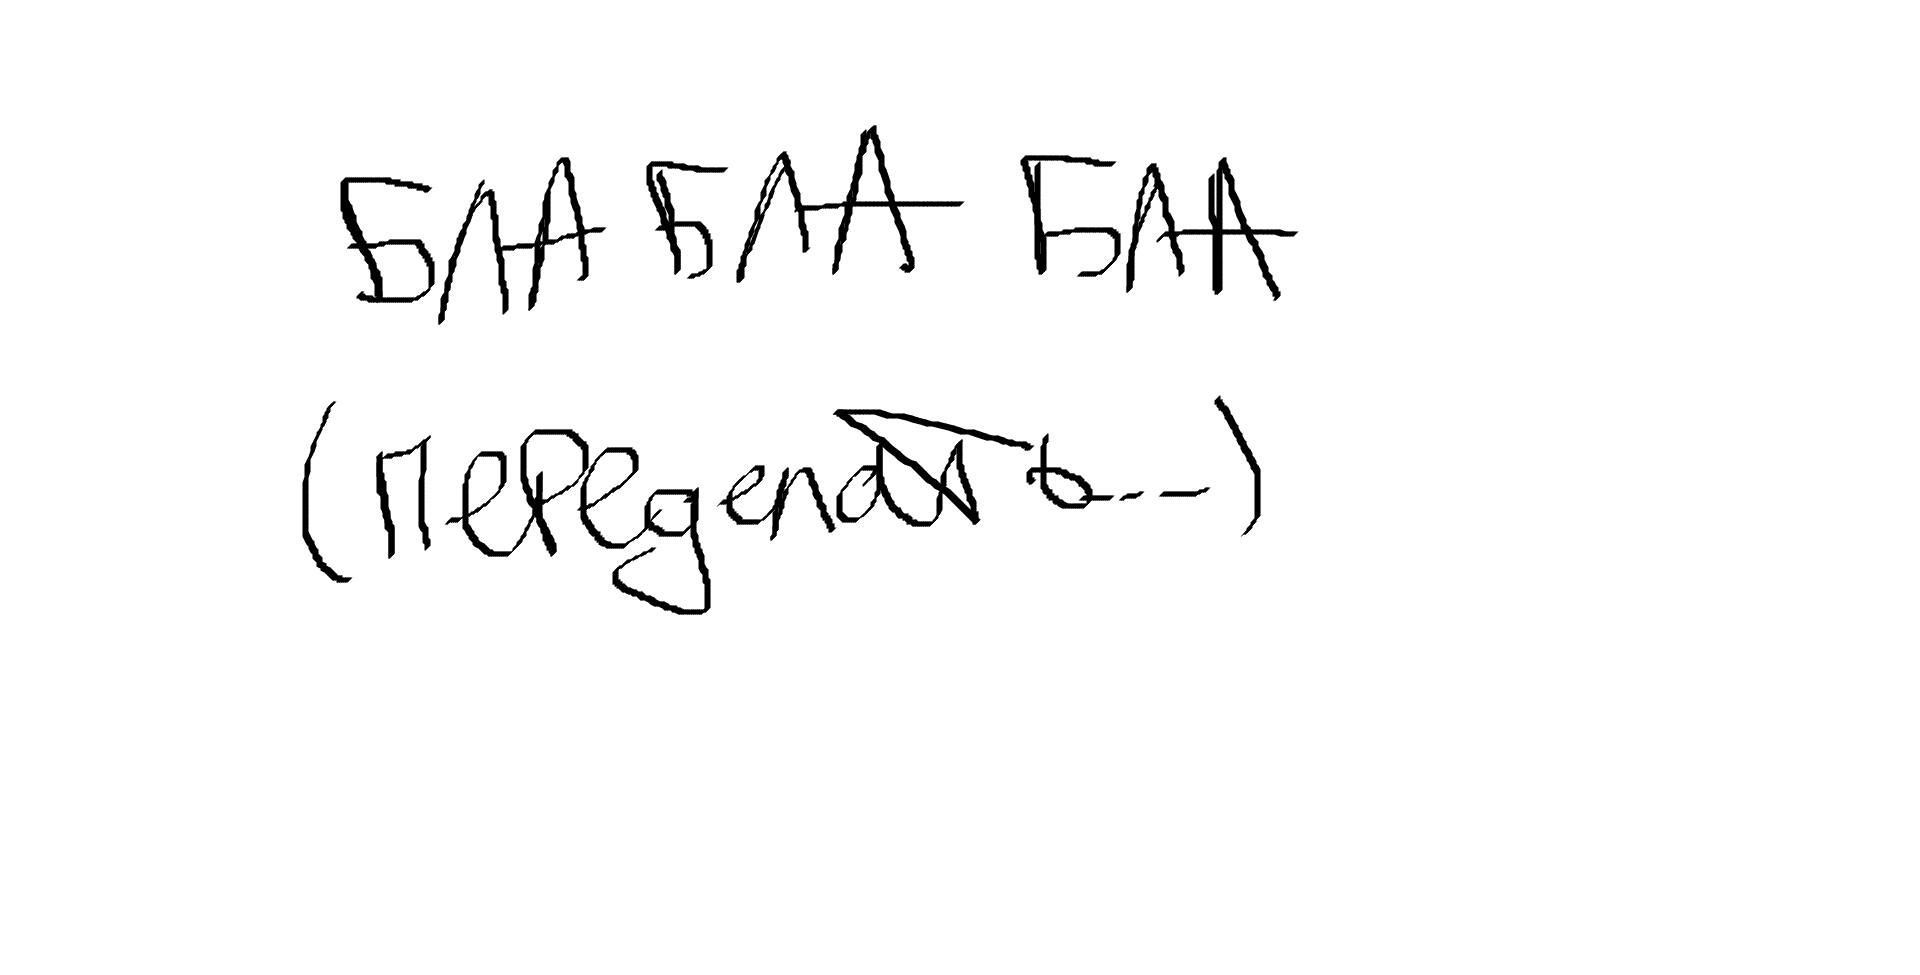 БЛА БЛА БЛА
(Переделать...)